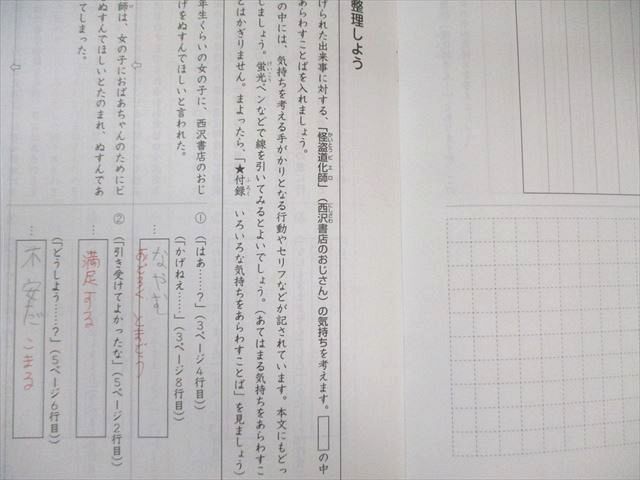 整理しよう
げられた出来事に対する、「怪盗道化師」（西沢書店のおじさん）の気持ちを考えます。　の中
あらわすことばを入れましょう。
の中には、気持ちを考える手がかりとなる行動やセリフなどが記されています。本文にもどっ
しましょう。蛍光ペンなどで線を引いてみるとよいでしょう。（あてはまる気持ちをあらわすこ
とはかぎりません。まよったら、「★付録　いろいろな気持ちをあらわすことば」を見ましょう）
年生くらいの女の子に、西沢書店のおじ
げをぬすんでほしいと言われた。
師は、女の子におばあちゃんのためにピ
ぬすんでほしいとたのまれ、ぬすんであ
てしまった。
①（「はあ……？」（3ページ4行目））
（「かげねえ……」（3ページ8行目））
…
なやむ
おどろく とまどう
②（「引き受けてよかったな」（5ページ2行目））
…
満足する
（「どうしよう……？」（5ページ6行目））
…
不安だ こまる